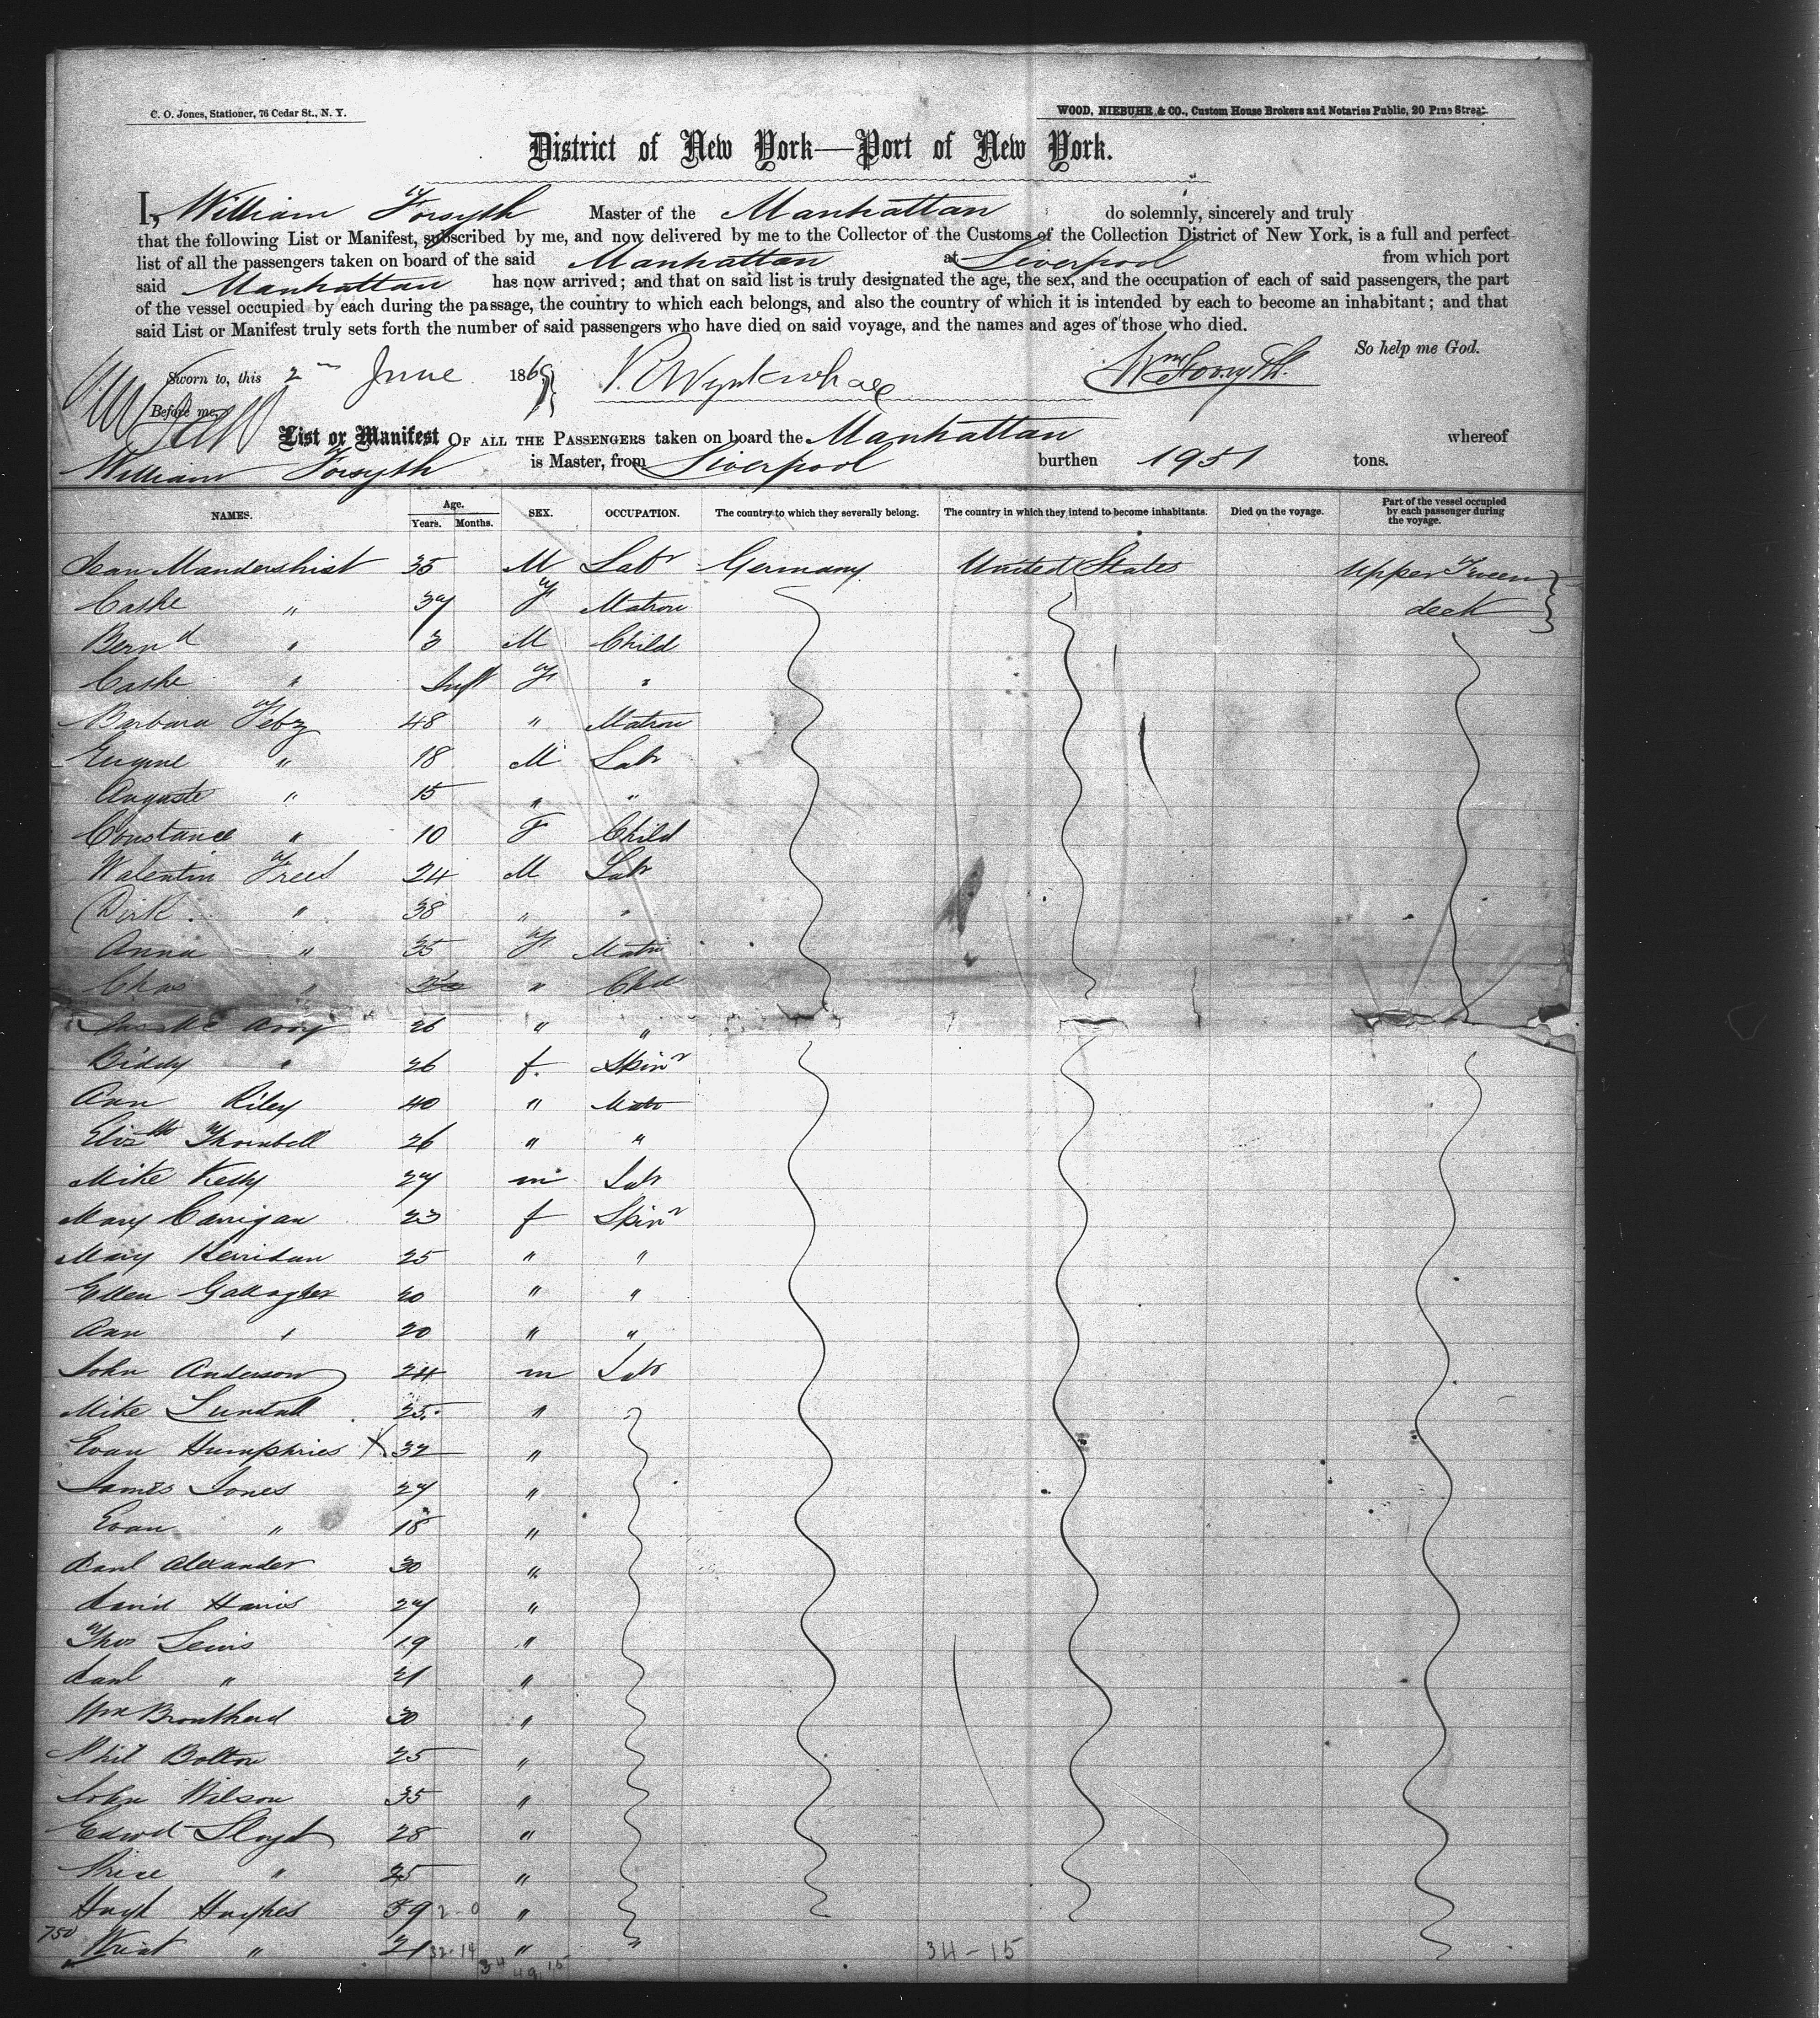 C. O. Jones, Stationer, 76 Cedar St., N. Y.
WOOD, NIEBUHR & CO., Custom House Brokers and Notaries Public, 20 Pine Street.
District of New York—Port of New York.
I, William Forsyth Master of the Manhattan do solemnly, sincerely and truly
that the following List or Manifest, subscribed by me, and now delivered by me to the Collector of the Customs of the Collection District of New York, is a full and perfect
list of all the passengers taken on board of the said Manhattan at Liverpool from which port
said Manhattan has now arrived; and that on said list is truly designated the age, the sex, and the occupation of each of said passengers, the part
of the vessel occupied by each during the passage, the country to which each belongs, and also the country of which it is intended by each to become an inhabitant; and that
said List or Manifest truly sets forth the number of said passengers who have died on said voyage, and the names and ages of those who died.
So help me God.
Sworn to, this 2 June 1869 Wm Forsyth
Before me,
List or Manifest OF ALL THE PASSENGERS taken on board the Manhattan whereof
William Forsyth is Master, from Liverpool burthen 1951 tons.
NAMES. Age. Years. Months. SEX. OCCUPATION. The country to which they severally belong. The country in which they intend to become inhabitants. Died on the voyage. Part of the vessel occupied by each passenger during the voyage.
Jean Mandershist 35 M Labr Germany United States Upper Tween
Cathe " 37 F Matron deck
Bernd " 3 M Child
Cathe " Inft F "
Barbara 48 " Matron
Eugene " 18 M Labr
Auguste " 15 " "
Constance " 10 F Child
Walentin Frees 24 M Labr
Dirk " 38 " "
Anna " 35 F Matn
Chas " " Chd
26 " "
Biddy " 26 f Spinr
Ann Riley 40 " Matn
Elizth Thornbell 26 " "
Mike Kelly 27 m Labr
Mary Carrigan 23 f Spinr
Mary 25 " "
Ellen Gallagher 20 " "
Ann " 20 " "
John Anderson 24 m Labr
Mike Lundall 25 "
Evan Humphries X 32 "
James Jones 27 "
Evan " 18 "
Danl Alexander 30 "
David Harris 27 "
Thos Lewis 19 "
Danl " 21 "
Wm 30 "
Phil Bolton 25 "
John Wilson 35 "
Edwd Lloyd 28 "
Price " 25 "
Hugh Hughes 59 2-0 "
750 " 21 32-14 " "
34-15
34 49,15